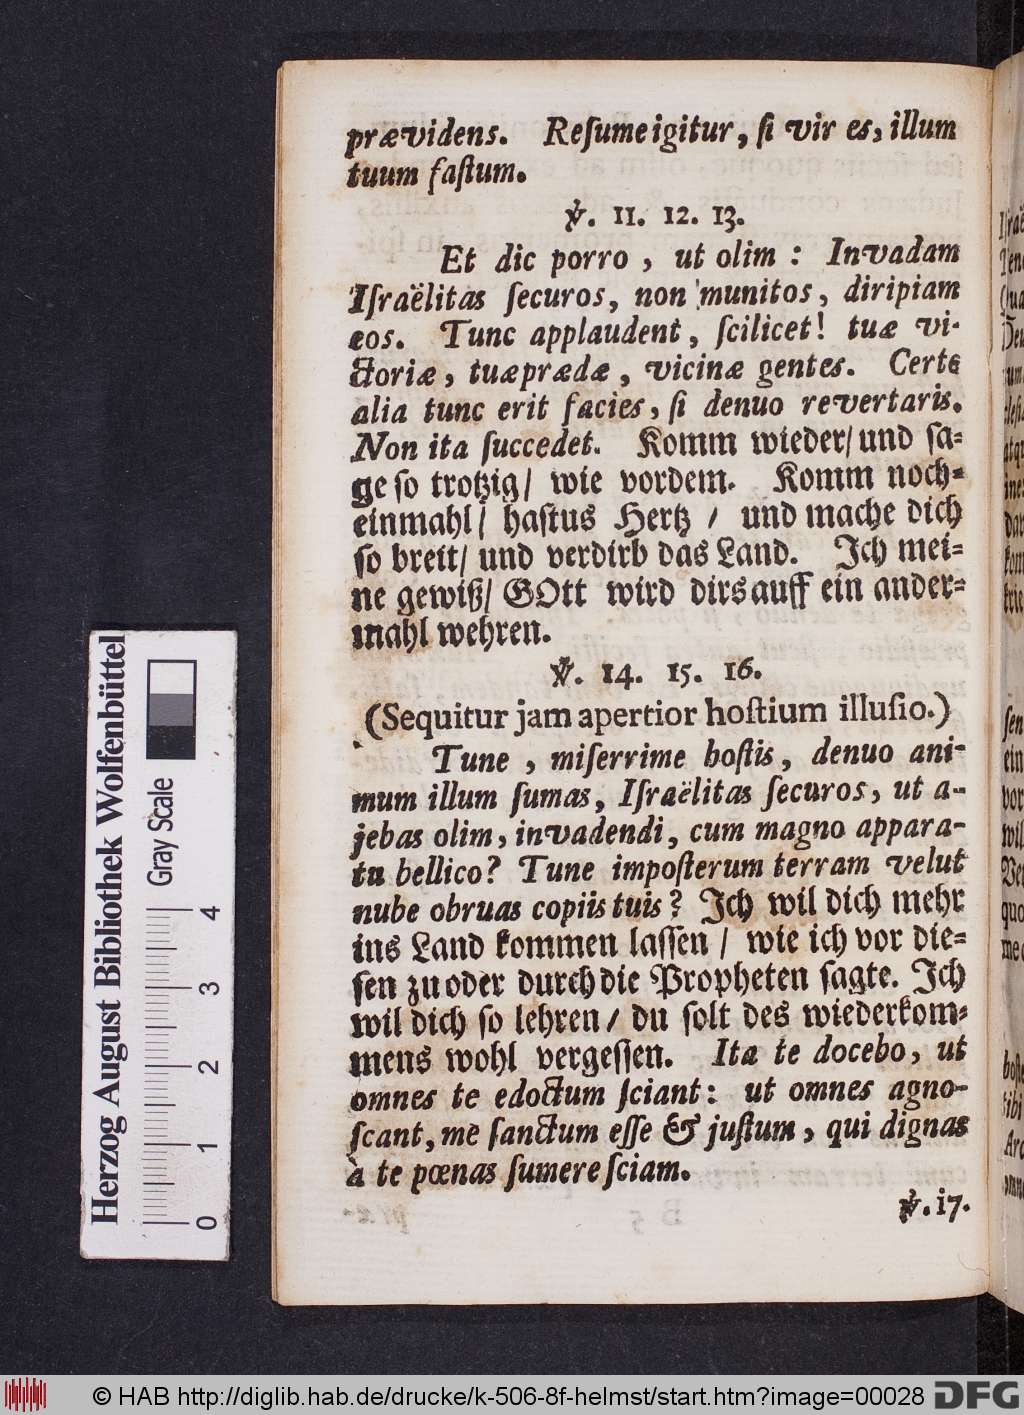 prævidens. Reſume igitur, ſi vir es, illum
tuum faſtum.
℣. 11. 12. 13.
Et dic porro, ut olim: Invadam
Iſraëlitas ſecuros, non munitos, diripiam
eos. Tunc applaudent, ſcilicet! tuæ vi-
ctoriæ, tuæ prædæ, vicinæ gentes. Certe
alia tunc erit facies, ſi denuo revertaris.
Non ita ſuccedet. Komm wieder/ und ſa-
ge ſo trotzig/ wie vordem. Komm noch-
einmahl/ haſtus Hertz / und mache dich
ſo breit/ und verdirb das Land. Ich mei-
ne gewiß/ GOtt wird dirs auff ein ander-
mahl wehren.
℣. 14. 15. 16.
(Sequitur jam apertior hoſtium illuſio.)
Tune, miſerrime hoſtis, denuo ani-
mum illum ſumas, Iſraëlitas ſecuros, ut a-
jebas olim, invadendi, cum magno appara-
tu bellico? Tune impoſterum terram velut
nube obruas copiis tuis? Ich wil dich mehr
ins Land kommen laſſen / wie ich vor die-
ſen zu oder durch die Propheten ſagte. Ich
wil dich ſo lehren/ du ſolt des wiederkom-
mens wohl vergeſſen. Ita te docebo, ut
omnes te edoctum ſciant: ut omnes agno-
ſcant, me ſanctum eſſe & juſtum, qui dignas
à te pœnas ſumere ſciam.
℣. 17.
Herzog August Bibliothek Wolfenbüttel
Gray Scale
0 1 2 3 4
© HAB http://diglib.hab.de/drucke/k-506-8f-helmst/start.htm?image=00028
DFG